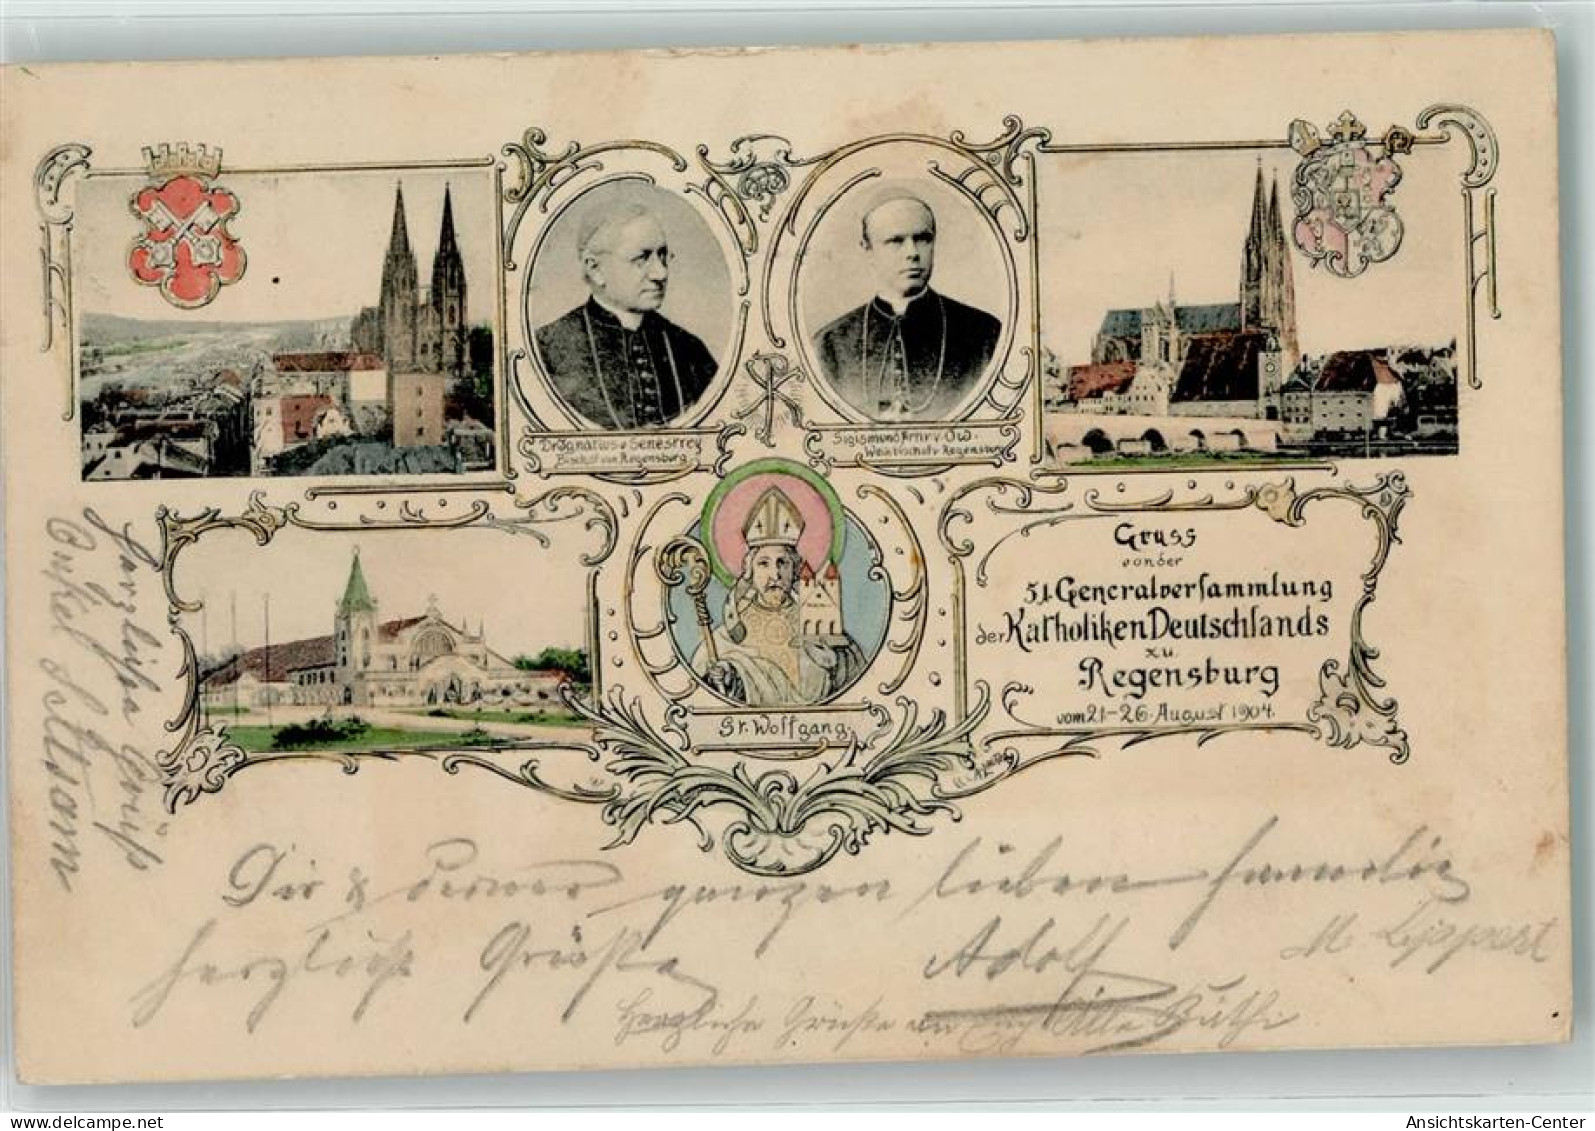 Dr Ignatius v Senestrey
Bischof von Regensburg.
Sigismund Frhr v. Ow.
Weihbischof v Regensburg
St. Wolfgang.
Gruss
von der
51. Generalversammlung
der Katholiken Deutschlands
zu
Regensburg
vom 21-26. August 1904.
Herzliche Grüß
Onkel
Dir & Deiner ganzen lieben Familie
herzliche Grüße Adolf
M. Lippert
Herzliche Grüße an Euch Alle
delcampe.net
Ansichtskarten-Center